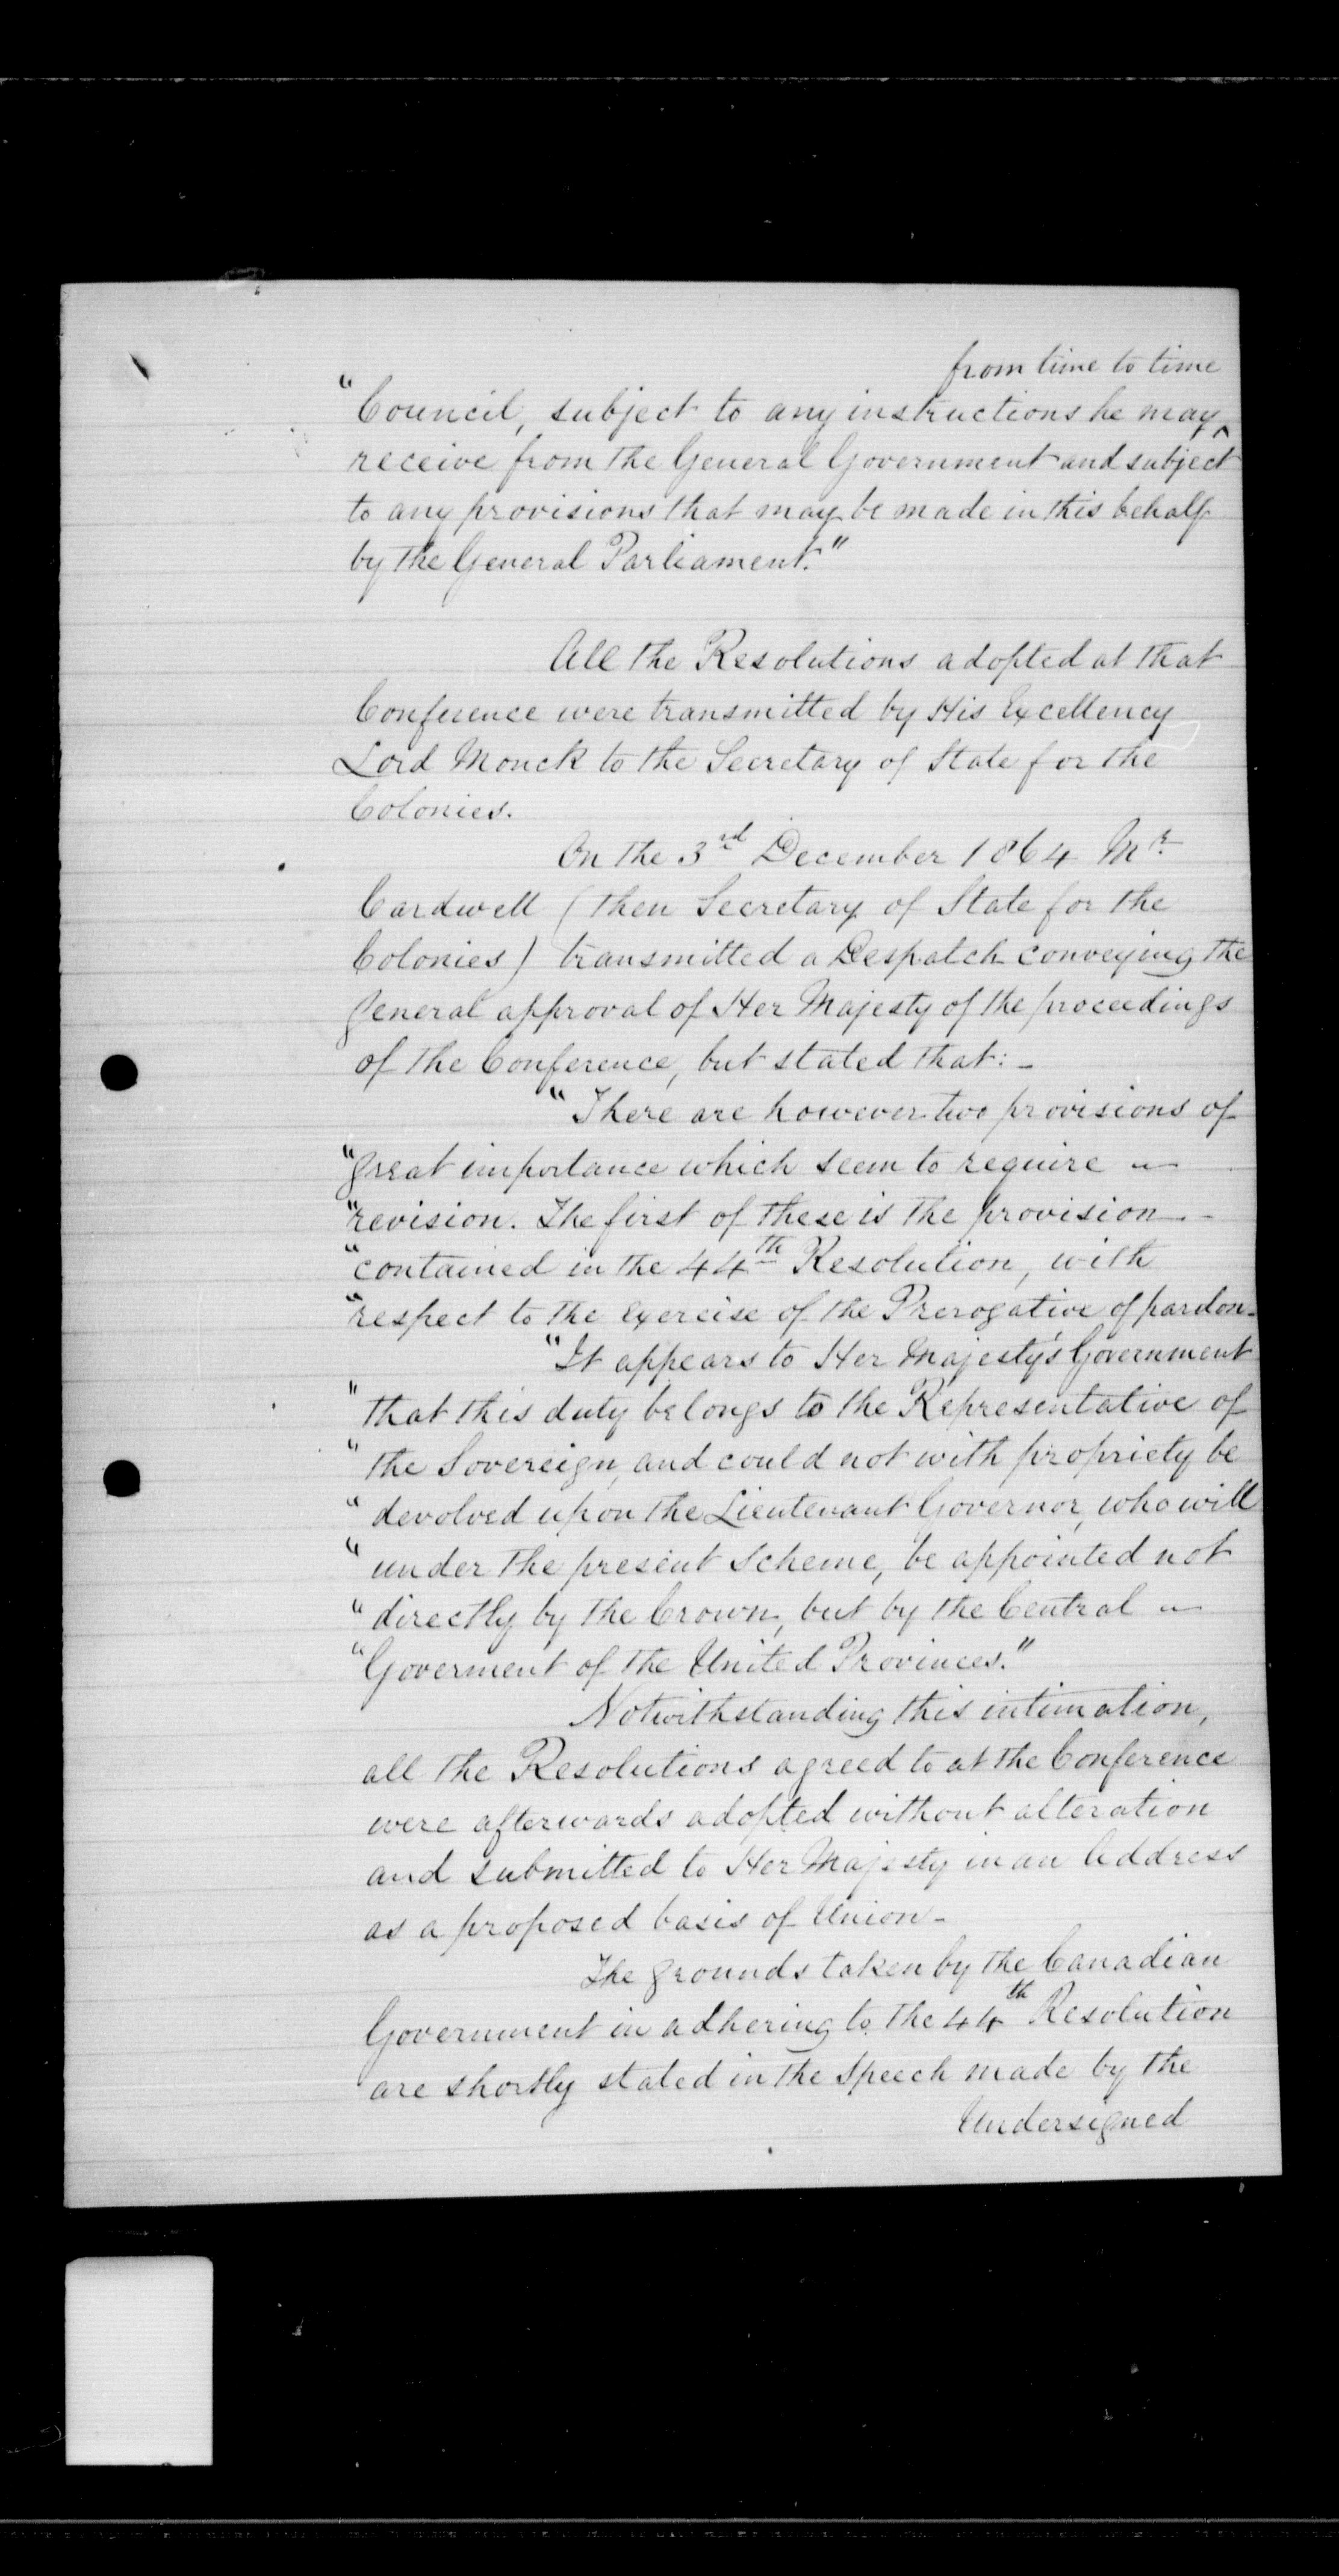 from time to time
"Council, subject to any instructions he may ^
receive from the General Government and subject
to any provisions that may be made in this behalf
by the General Parliament."
All the Resolutions adopted at that
Conference were transmitted by His Excellency
Lord Monck to the Secretary of State for the
Colonies.
On the 3rd December 1864 Mr
Cardwell (then Secretary of State for the
Colonies) transmitted a Despatch conveying the
general approval of Her Majesty of the proceedings
of the Conference, but stated that:-
"There are however two provisions of
"great importance which seem to require -
"revision. The first of these is the provision -
"contained in the 44th Resolution, with
"respect to the exercise of the Prerogative of pardon.
"It appears to Her Majesty's Government
"that this duty belongs to the Representative of
"the Sovereign, and could not with propriety be
"devolved upon the Lieutenant Governor, who will
"under the present Scheme, be appointed not
"directly by the Crown, but by the Central -
"Goverment of the United Provinces."
Notwithstanding this intimation,
all the Resolutions agreed to at the Conference
were afterwards adopted without alteration
and submitted to Her Majesty in an Address
as a proposed basis of Union -
The grounds taken by the Canadian
Government in adhering to the 44th Resolution
are shortly stated in the Speech made by the
Undersigned